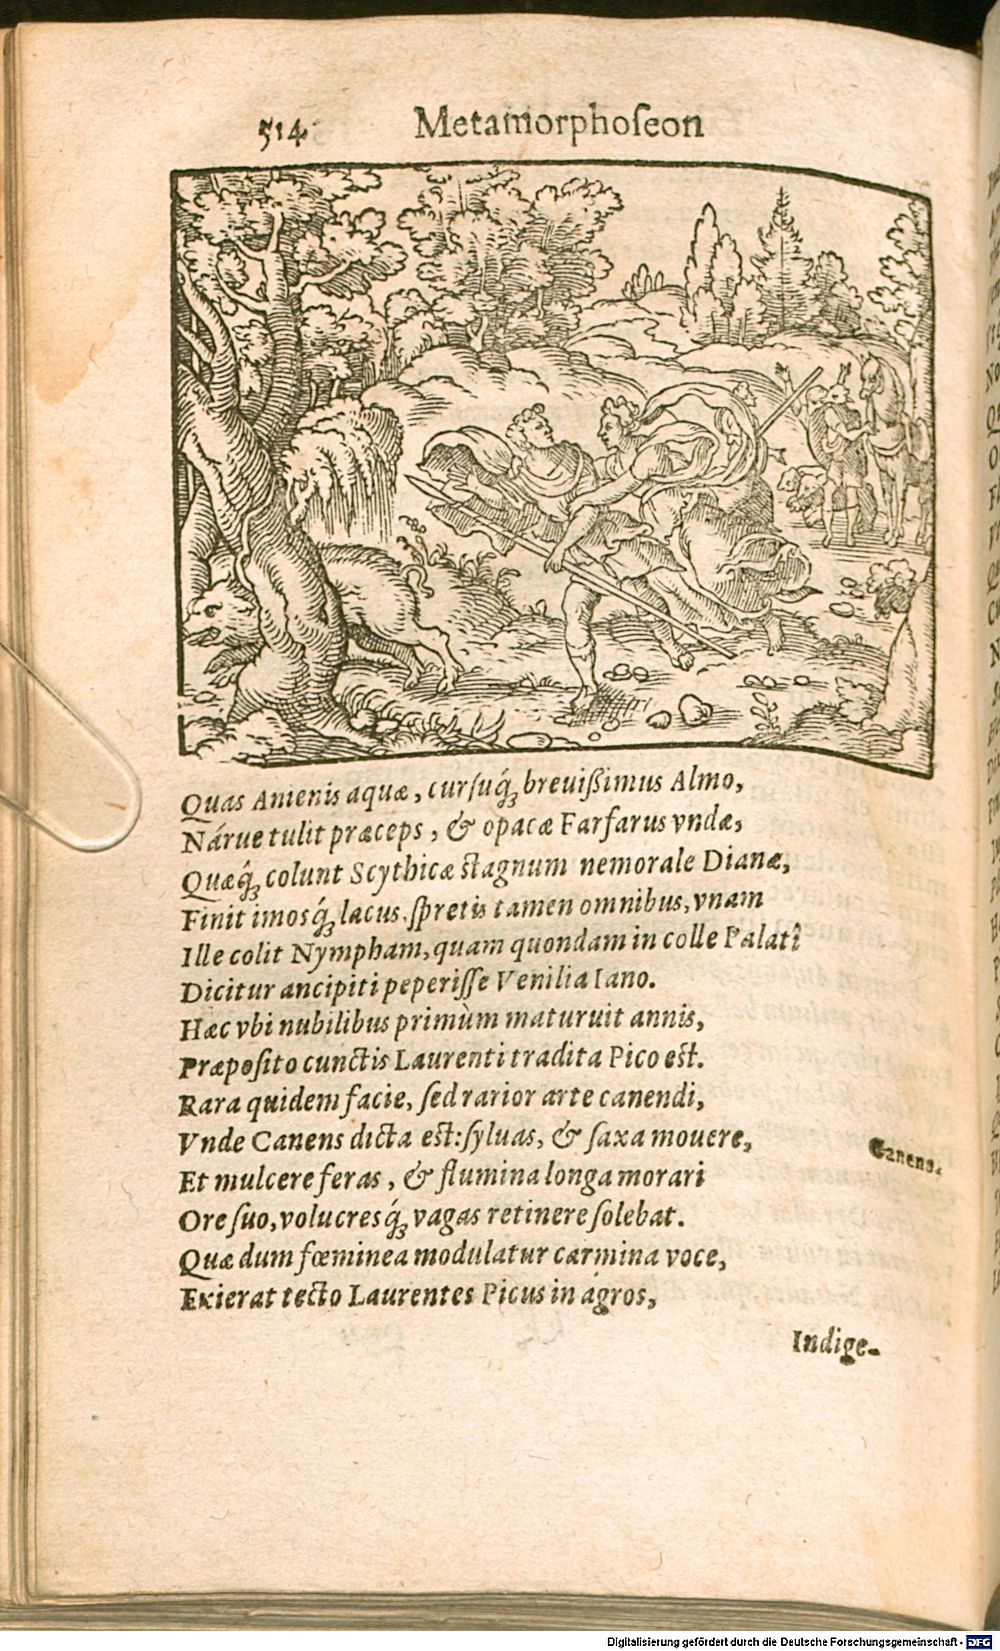 514. Metamorphoſeon
Quas Anienis aquæ, curſuq́; breuißimus Almo,
Nárue tulit præceps, & opacæ Farfarus vndæ,
Quæq́; colunt Scythicæ ſtagnum nemorale Dianæ,
Finitimosq́; lacus. ſpretis tamen omnibus, vnam
Ille colit Nympham, quam quondam in colle Palatî
Dicitur ancipiti peperiſſe Venilia Iano.
Hæc vbi nubilibus primùm maturuit annis,
Præpoſito cunctis Laurenti tradita Pico eſt.
Rara quidem facie, ſed rarior arte canendi,
Vnde Canens dicta eſt: ſyluas, & ſaxa mouere,
Canens.
Et mulcere feras, & flumina longa morari
Ore ſuo, volucresq́; vagas retinere ſolebat.
Quæ dum fœminea modulatur carmina voce,
Exierat tecto Laurentes Picus in agros,
Indige-
Digitalisierung gefördert durch die Deutsche Forschungsgemeinschaft - DFG